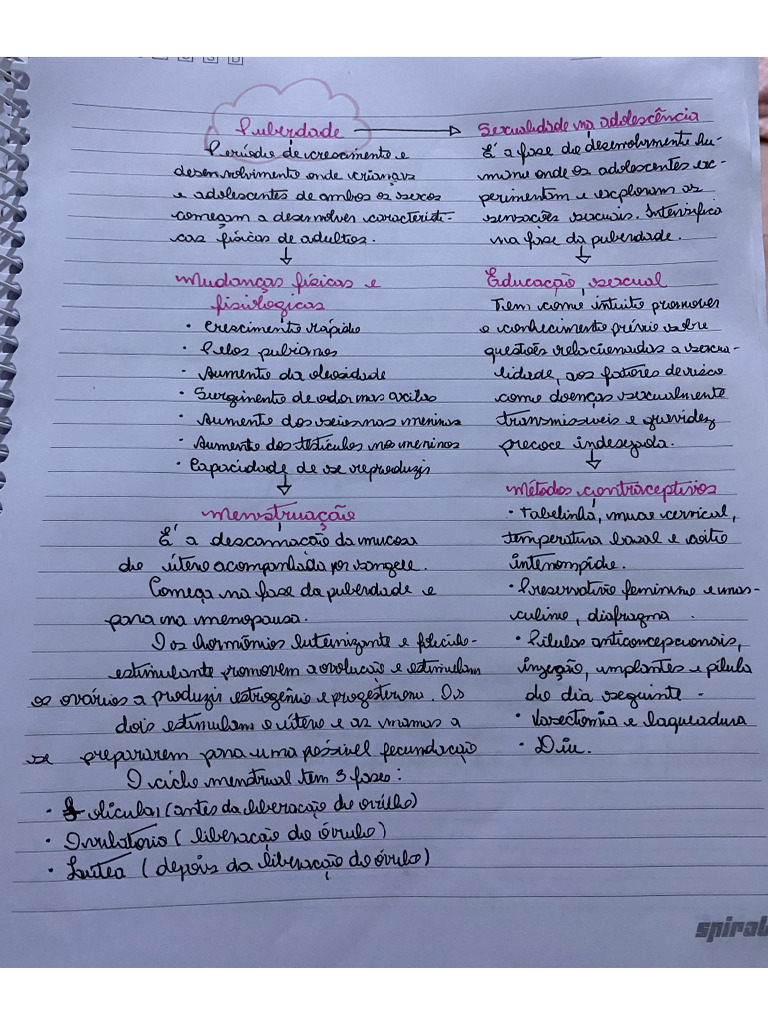 Puberdade
Período de crescimento e
desenvolvimento onde crianças
e adolescentes de ambos os sexos
começam a desenvolver característi-
cas físicas de adultos.
Mudanças físicas e
fisiológicas
• Crescimento rápido
• Pelos pubianos
• Aumento da oleosidade
• Surgimento de odor nas axilas
• Aumento dos seios nas meninas
• Aumento dos testículos nos meninos
• Capacidade de se reproduzir
menstruação
É a descamação da mucosa
do útero acompanhada por sangue.
Começa na fase da puberdade e
para na menopausa.
Os hormônios luteinizante e folículo-
estimulante promovem a ovulação e estimulam
os ovários a produzir estrogênio e progesterona. Os
dois estimulam o útero e as mamas a
se prepararem para uma possível fecundação
O ciclo menstrual tem 3 fases:
• Folicular (antes da liberação do óvulo)
• Ovulatório (liberação do óvulo)
• Lútea (depois da liberação do óvulo)
Sexualidade na adolescência
É a fase do desenvolvimento hu-
mano onde os adolescentes ex-
perimentam e exploram as
sensações sexuais. Intensifica
na fase da puberdade.
Educação sexual
Tem como intuito promover
o conhecimento prévio sobre
questões relacionadas a sexua-
lidade, aos fatores de risco
como doenças sexualmente
transmissíveis e gravidez
precoce indesejada.
Métodos contraceptivos
• Tabelinha, muco cervical,
temperatura basal e coito
interrompido.
• Preservativo feminino e mas-
culino, diafragma.
• Pílulas anticoncepcionais,
injeção, implantes e pílula
do dia seguinte.
• Vasectomia e laqueadura
• Diu.
spiral